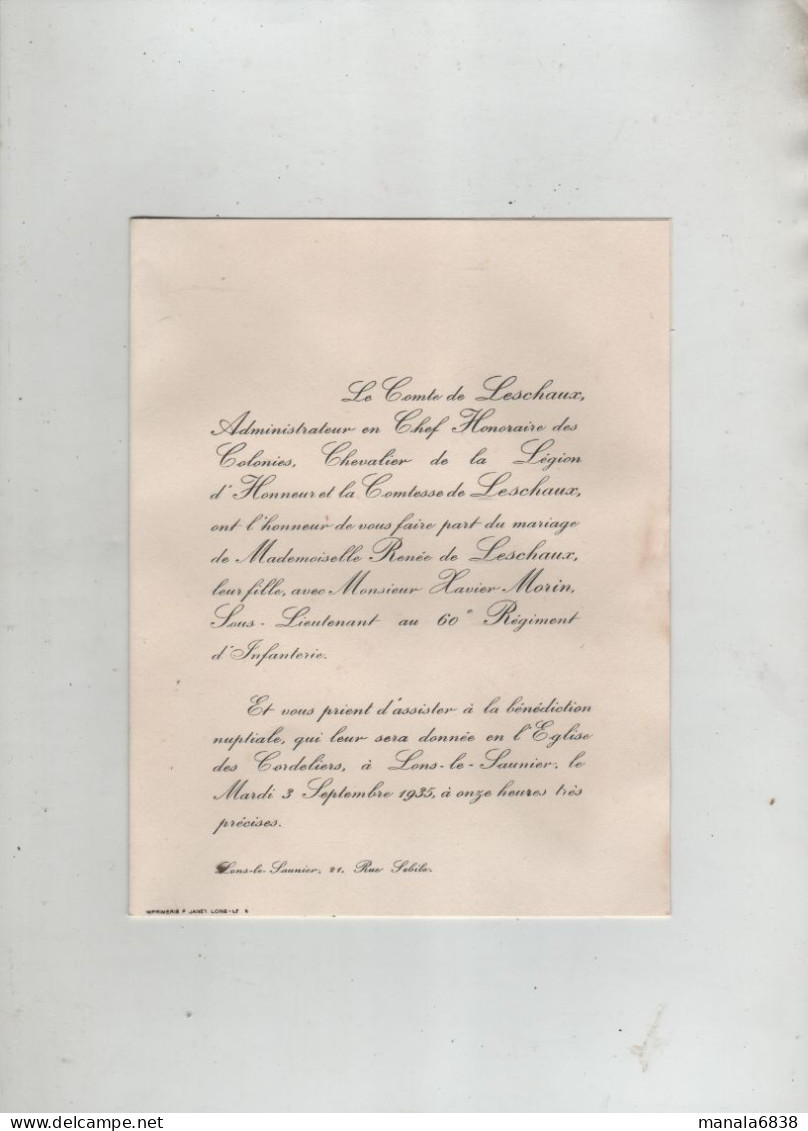 Le Comte de Leschaux,
Administrateur en Chef Honoraire des
Colonies, Chevalier de la Légion
d'Honneur et la Comtesse de Leschaux,
ont l'honneur de vous faire part du mariage
de Mademoiselle Renée de Leschaux,
leur fille, avec Monsieur Xavier Morin,
Sous-Lieutenant au 60e Régiment
d'Infanterie.
Et vous prient d'assister à la bénédiction
nuptiale, qui leur sera donnée en l'Eglise
des Cordeliers, à Lons-le-Saunier, le
Mardi 3 Septembre 1935, à onze heures très
précises.
Lons-le-Saunier, 21, Rue Sebile.
IMPRIMERIE P JANET LONS-
manala6838